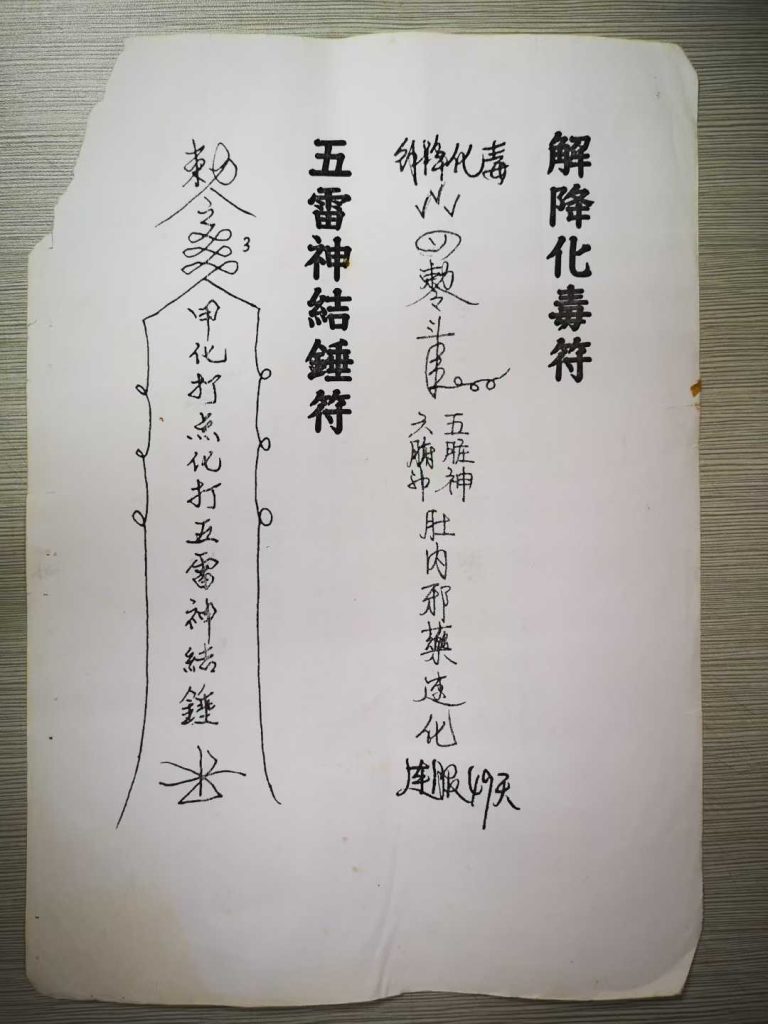 解降化毒符
解降化毒
四
敕令
斗
五脏神
六腑神
肚内邪藥速化
连服49天
五雷神結錘符
敕令
3
甲化打点化打五雷神結錘